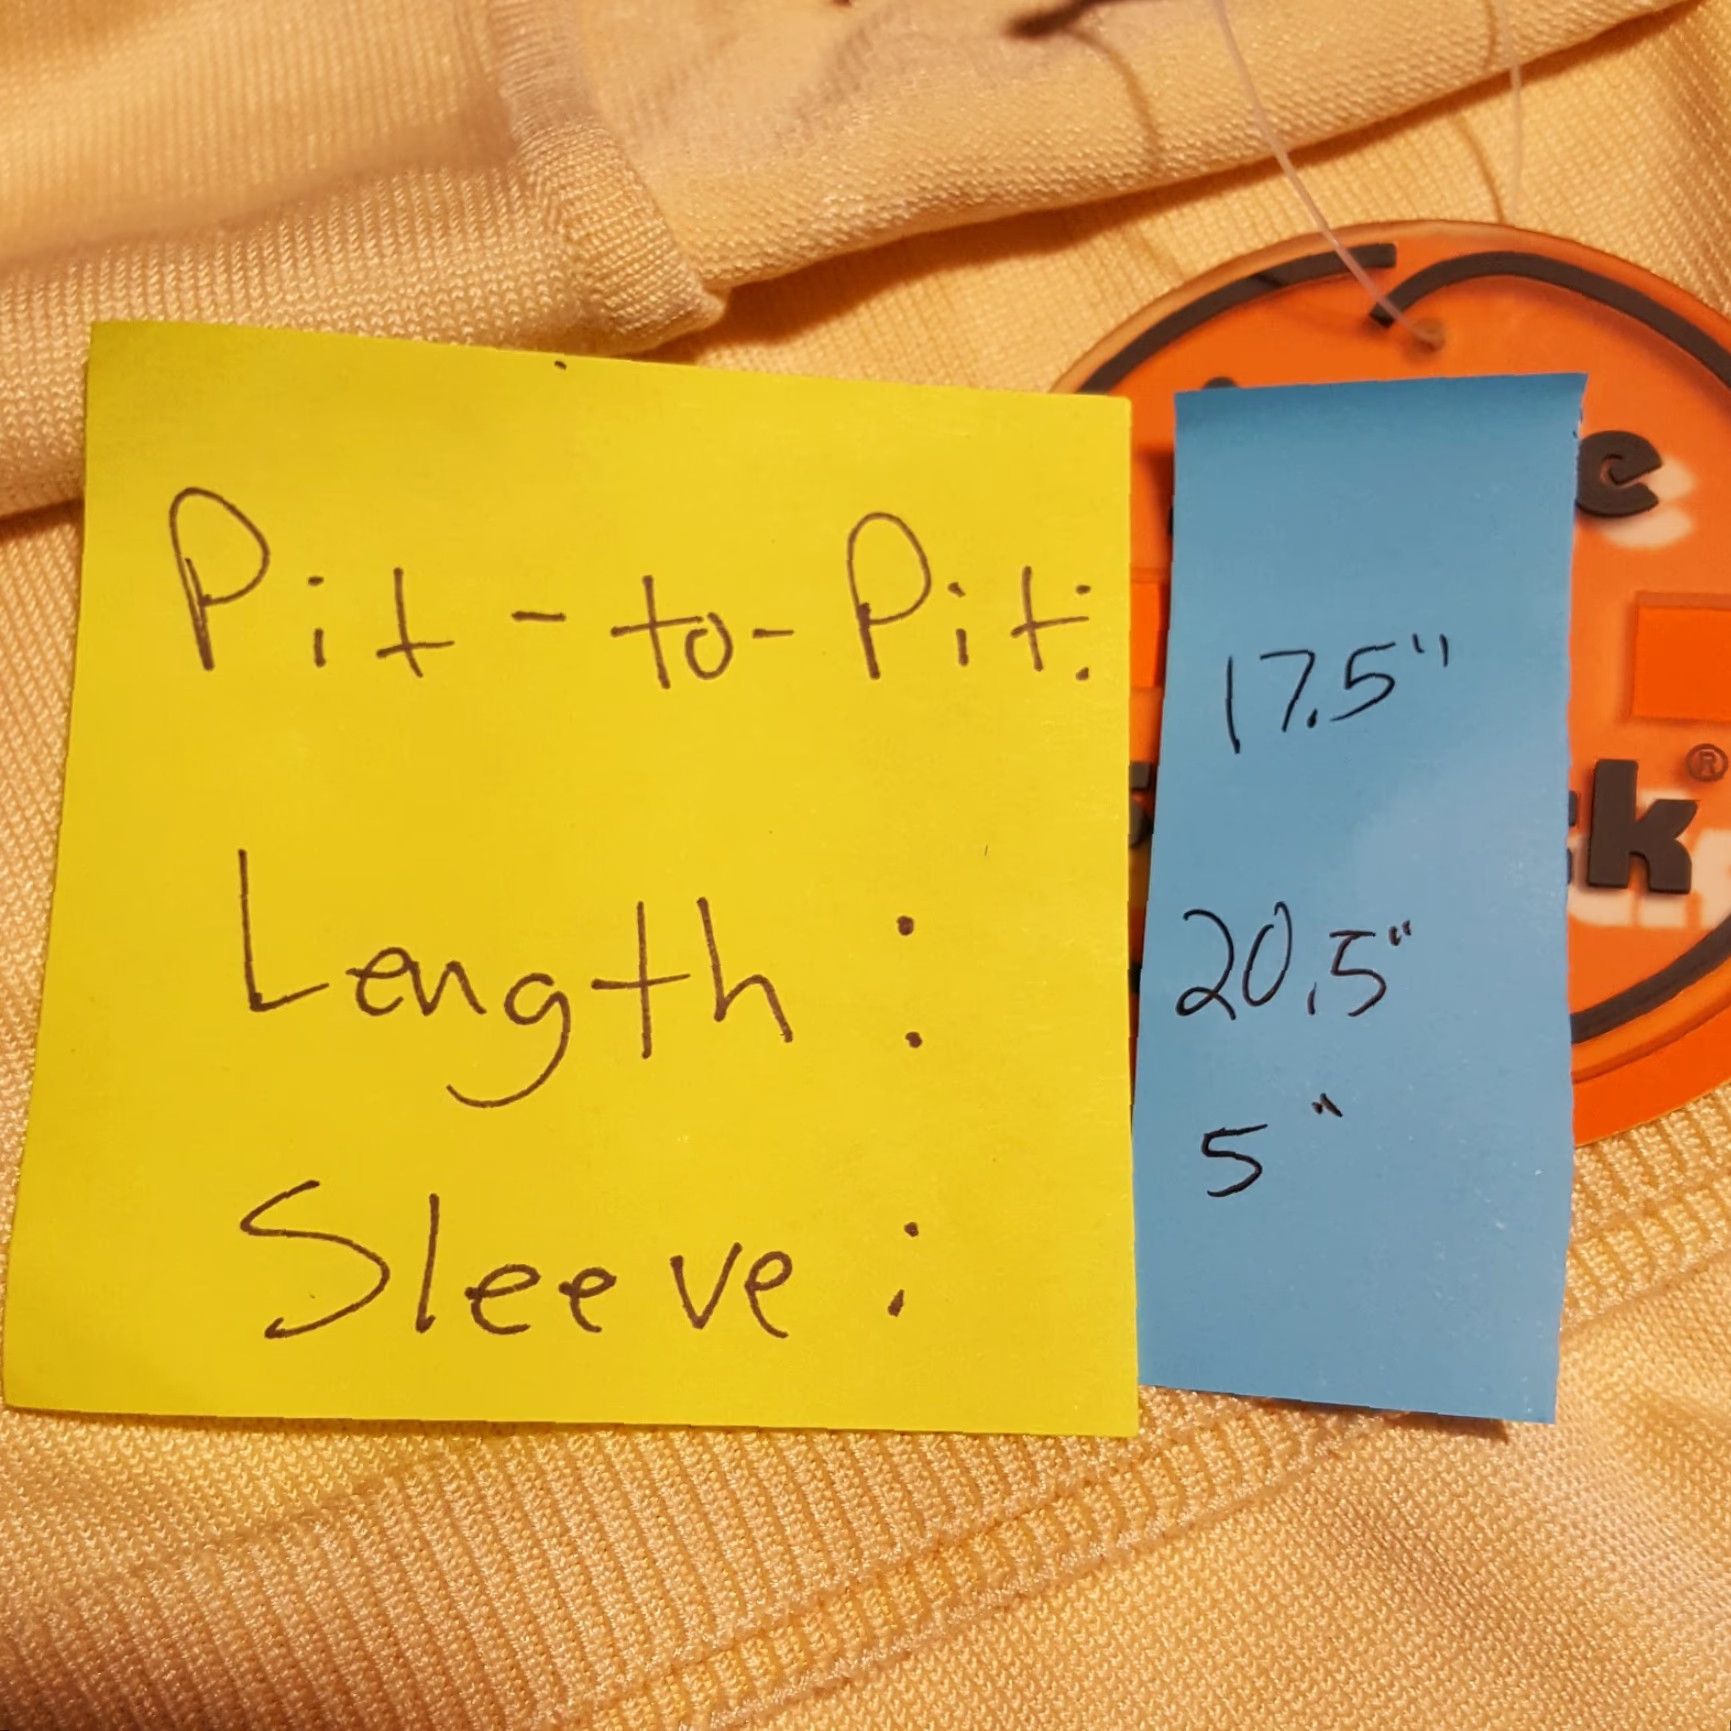 Pit-to-Pit: 17.5"
Length: 20.5"
Sleeve: 5"